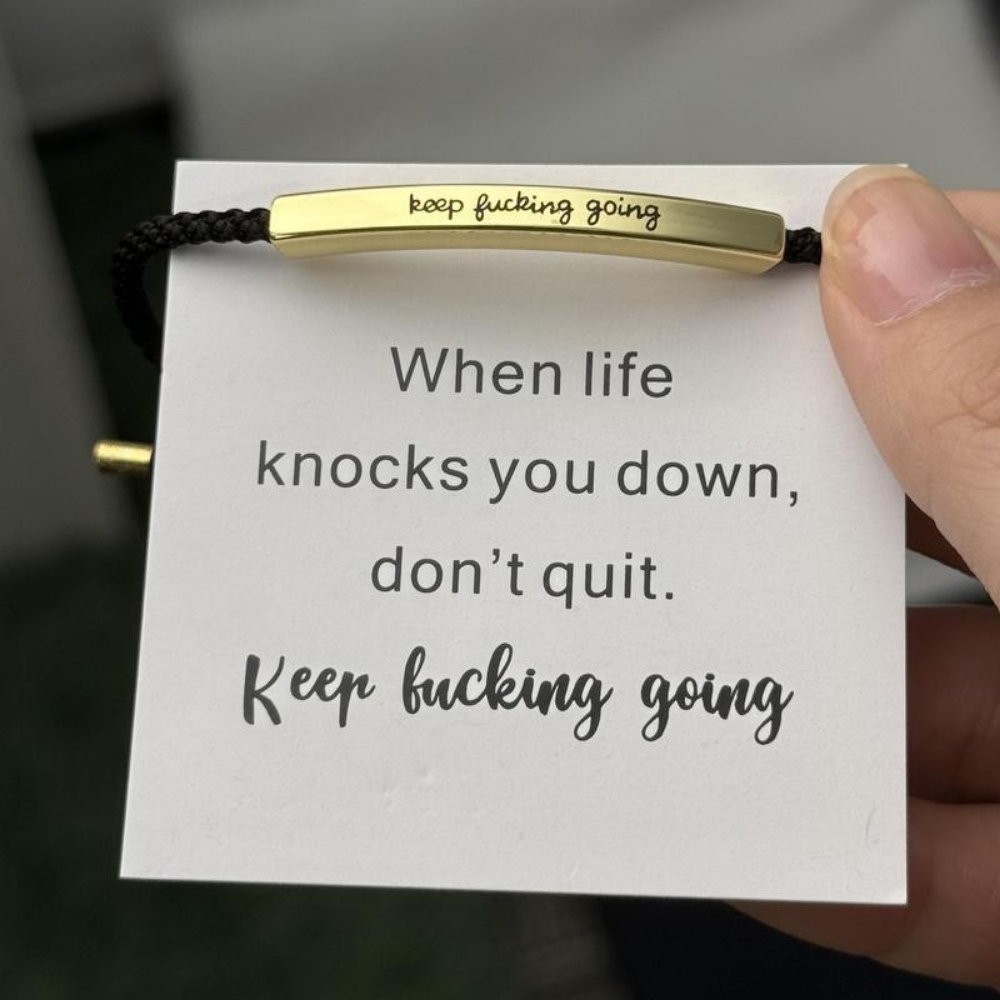 keep fucking going
When life
knocks you down,
don't quit.
Keep fucking going